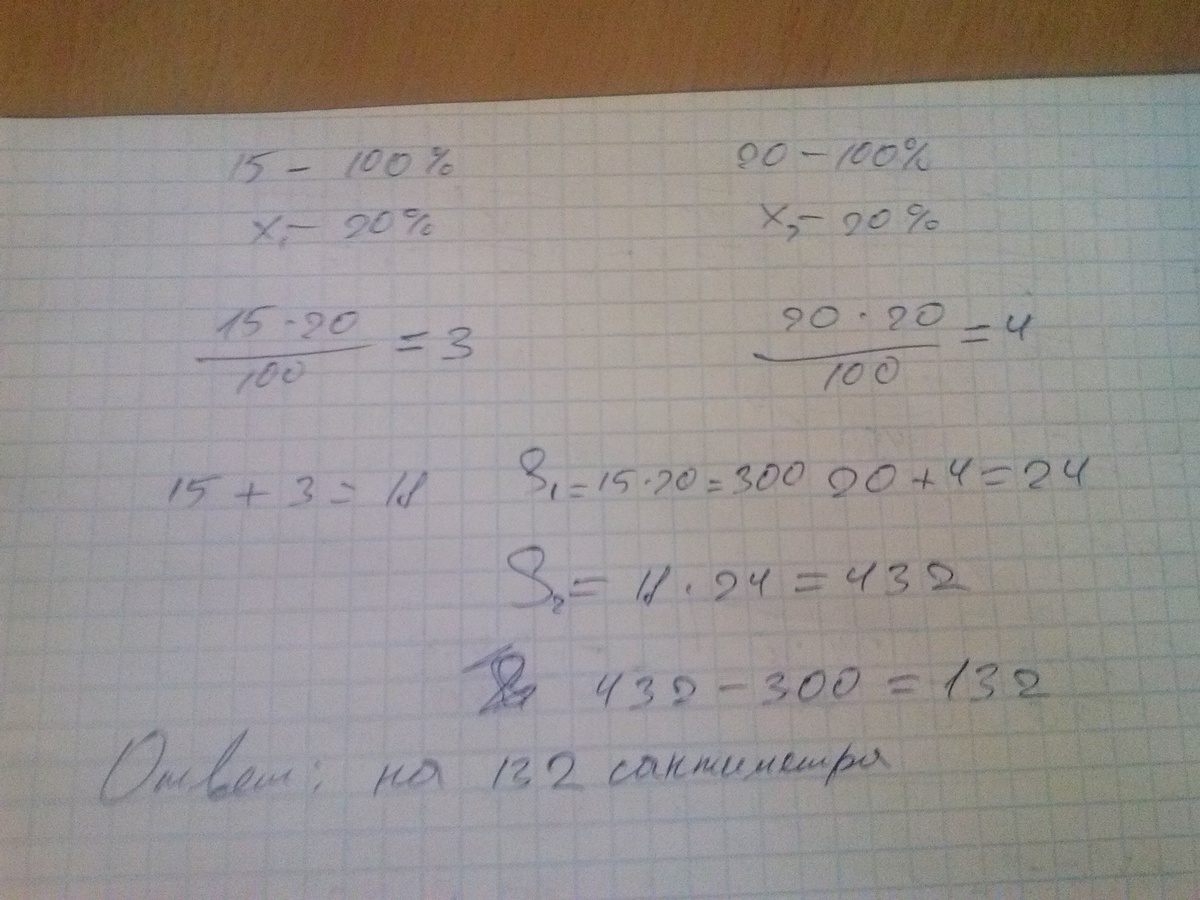 15 – 100% 20 – 100%
x₁ – 20% x₂ – 20%
15·20/100 = 3 20·20/100 = 4
15 + 3 = 18 S₁ = 15·20 = 300 20 + 4 = 24
S₂ = 18 · 24 = 432
432 – 300 = 132
Ответ: на 132 сантиметра